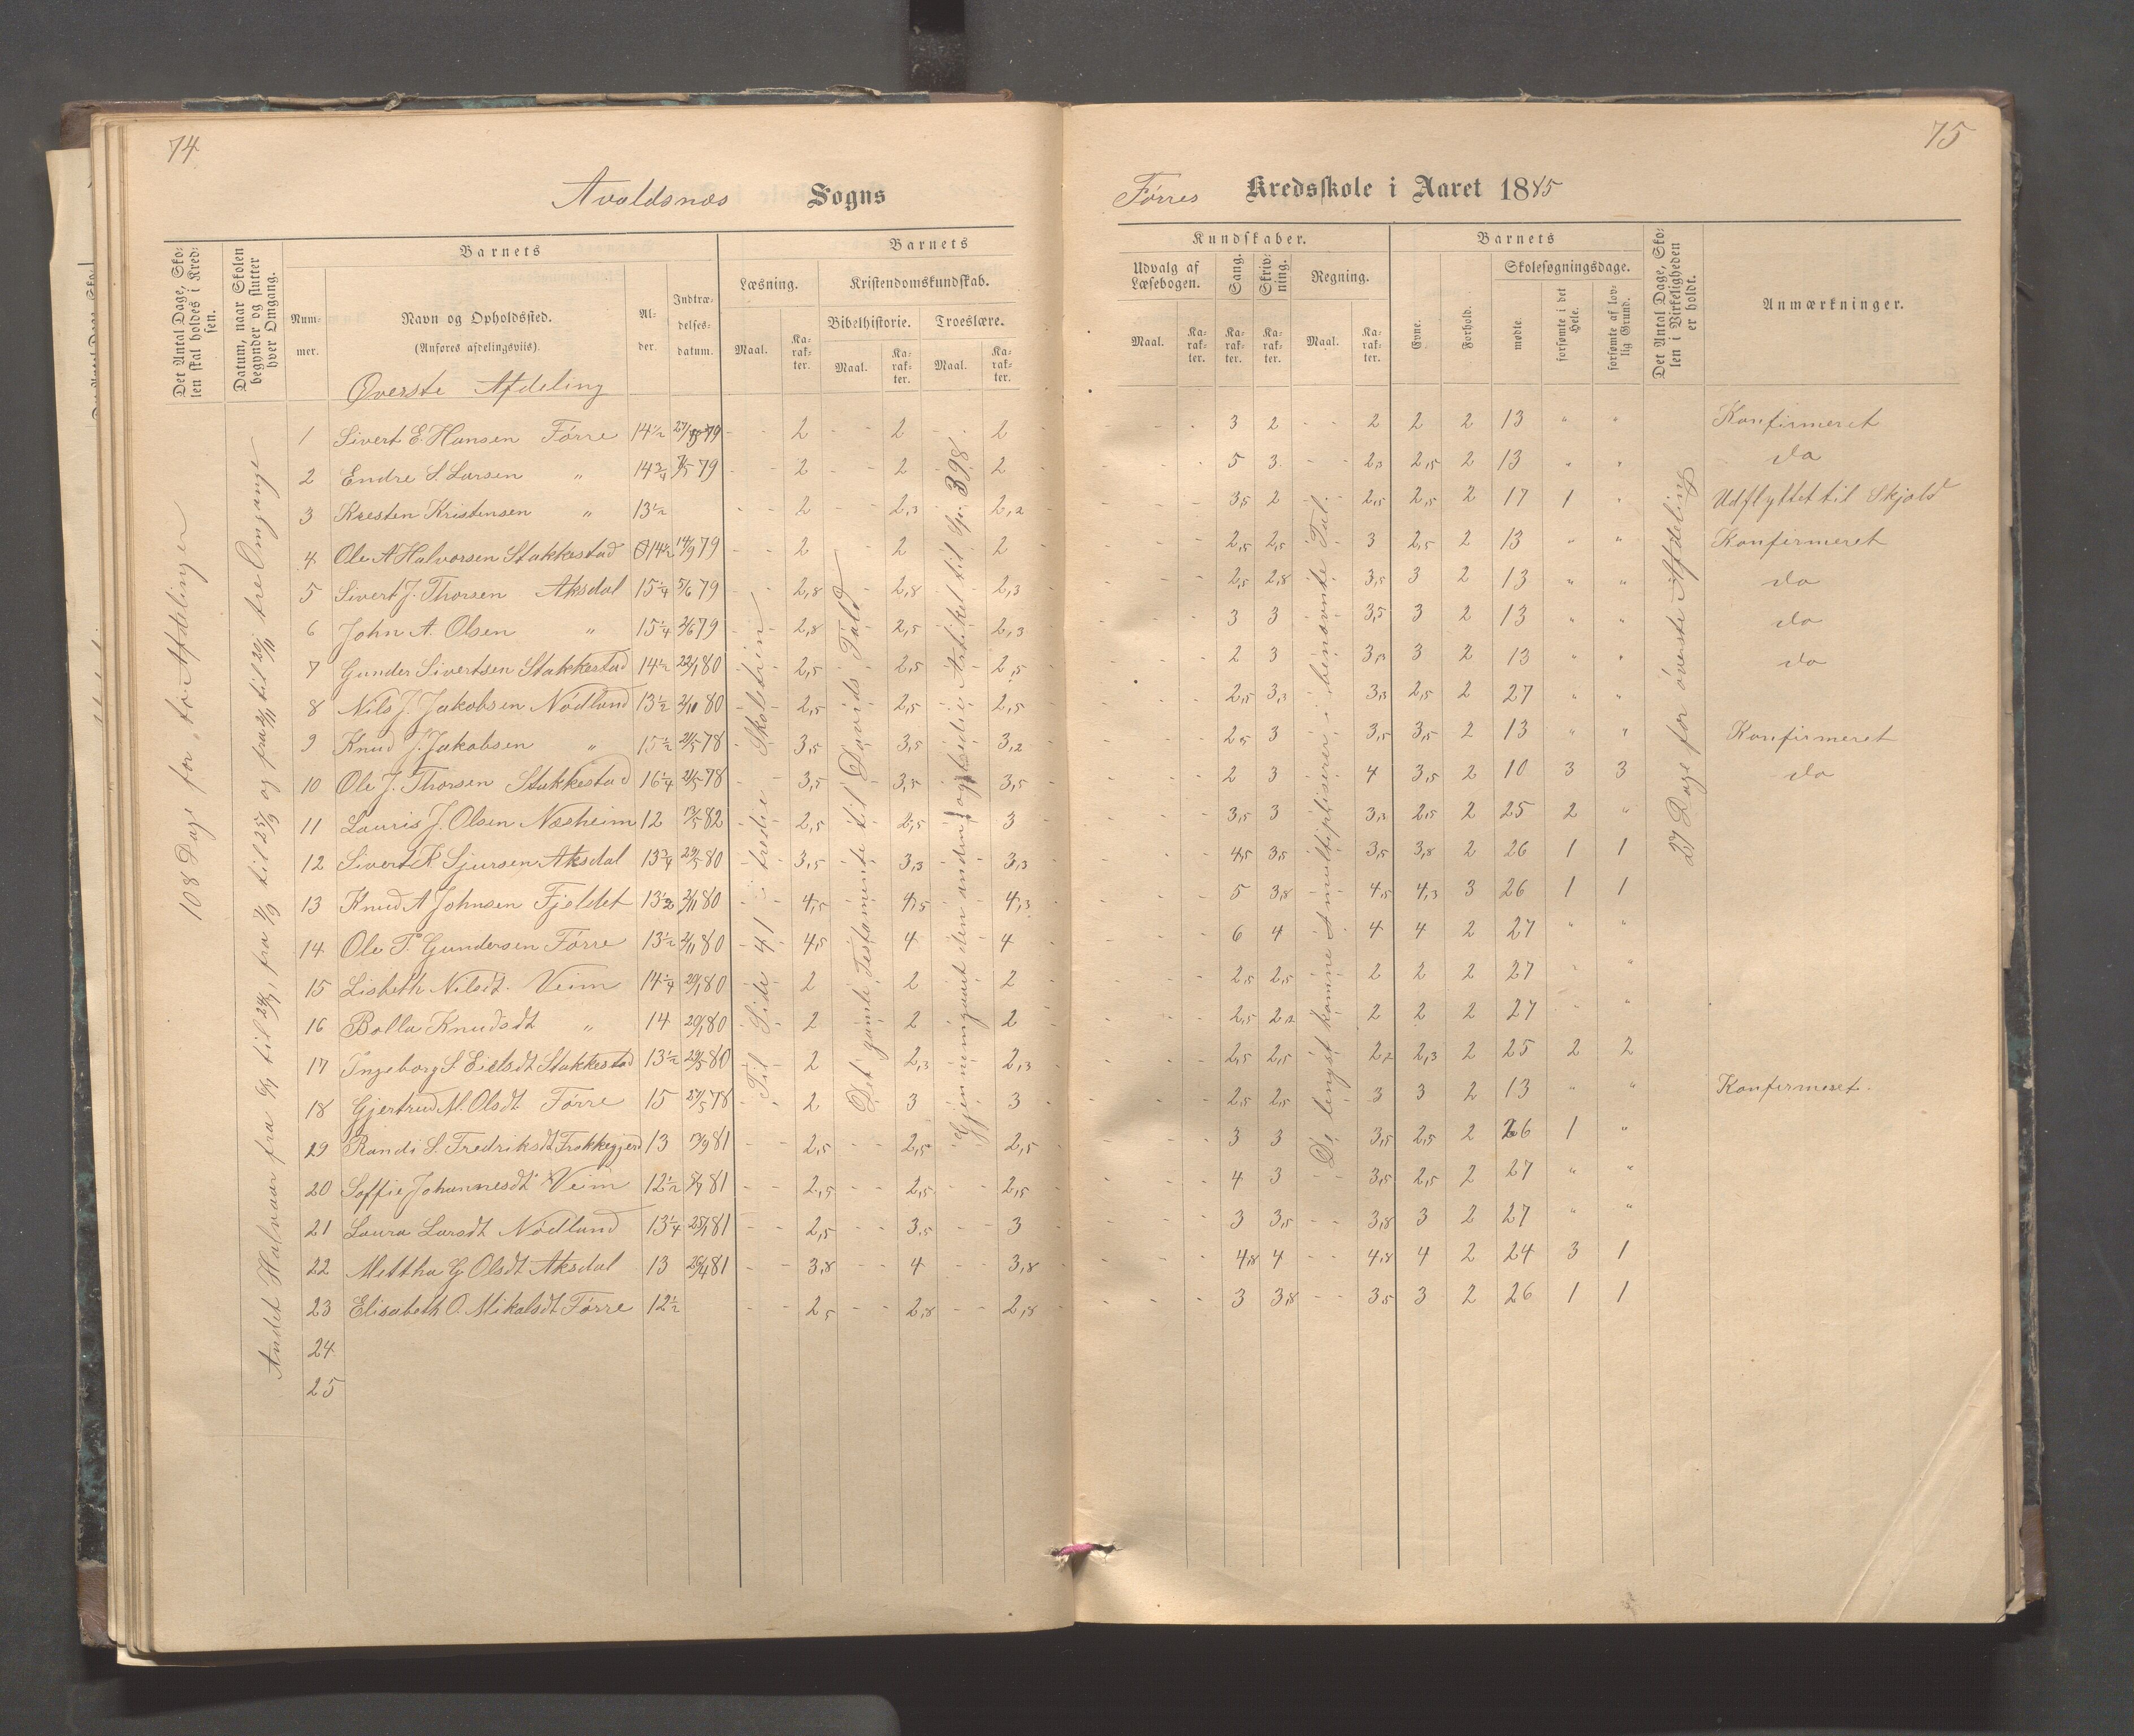 74
Avaldsnes Sogns
Det Antal Dage, Skolen skal holdes i Kredsen.
Datum, naar Skolen begynder og slutter hver Omgang.
Barnets
Nummer.
Navn og Opholdssted.
(Anføres afdelingsviis).
Alder.
Indtrædelsesdatum.
Barnets
Læsning.
Maal.
Karakter.
Kristendomskundskab.
Bibelhistorie.
Maal.
Karakter.
Troeslære.
Maal.
Karakter.
Øverste Afdeling
108 Dage for to Afdelinger
Til Side 41 i tredie Skoletrin
Det gamle Testamente til Davids Tald
Gjennemgaaet den anden og tredie Artikel til Sp. 398
1 Sivert E. Hansen Førre 14½ 79 - - 2 - - 2 - - 2
2 Endre S. Larsen " 14¾ 7/5 79 - - 2 - - 2 - - 2
3 Kresten Kristensen " 13½ - - 2 - - 2,3 - - 2,2
4 Ole A Halvorsen Stakkestad 14½ 14/9 79 - - 2 - - 2 - - 2
5 Sivert J. Thorsen Aksdal 15¼ 5/6 79 - - 2,8 - - 2,8 - - 2,3
6 John A. Olsen " 15¼ 2/6 79 - - 2,8 - - 2,5 - - 2,3
7 Gunder Sivertsen Stakkestad 14½ 22/1 80 - - 2,5 - - 2,5 - - 2,5
8 Nils J. Jakobsen Nødlund 13½ 2/11 80 - - 2,5 - - 2,5 - - 2,5
9 Knud J. Jakobsen " 15½ 21/5 78 - - 3,5 - - 3,5 - - 3,2
10 Ole J. Thorsen Stakkestad 16¼ 21/5 78 - - 3,5 - - 3,5 - - 3,5
11 Lauris J. Olsen Næsheim 12 13/5 82 - - 2,5 - - 2,5 - - 3
12 Sivert K Sjursen Aksdal 13¾ 29/5 80 - - 3,5 - - 3,3 - - 3,3
13 Knud A Johnsen Fjeldet 13½ 2/11 80 - - 4,5 - - 4,5 - - 4,3
14 Ole T. Gundersen Førre 13½ 2/11 80 - - 4,5 - - 4 - - 4
15 Lisbeth Nilsdt. Veim 14¼ 20/1 80 - - 2 - - 2 - - 2
16 Bolla Knudsdt " 14 20/1 80 - - 2 - - 2 - - 2
17 Ingeborg S Eielsdt Stakkestad 13½ 29/5 80 - - 2 - - 2,3 - - 2,3
18 Gjertrud M. Olsdt Førre 15 27/5 78 - - 2 - - 3 - - 3
19 Randi S. Fredriksdt Frakkegjerd 13 13/9 81 - - 2,5 - - 2,5 - - 2,5
20 Soffie Johannesdt Veim 12½ 81 - - 2,5 - - 2,5 - - 2,5
21 Laura Larsdt Nødlund 13¼ 25/1 81 - - 2,5 - - 3,5 - - 3
22 Mettha G Olsdt Aksdal 13 26/4 81 - - 3,8 - - 4 - - 3,8
23 Elisabeth O. Mikalsdt Førre 12½ - - 2,5 - - 2,8 - - 2,8
24
25
75
Førres Kredsskole i Aaret 1885
Kundskaber.
Udvalg af Læsebogen.
Maal.
Karakter.
Sang.
Karakter.
Skrivning.
Karakter.
Regning.
Maal.
Karakter.
Barnets
Evne.
Forhold.
Skolesøgningsdage.
mødte.
forsømte i det Hele.
forsømte af lovlig Grund.
Det Antal Dage, Skolen i Virkeligheden er holdt.
Anmærkninger.
De lengst komne multipliserer i benævnte Tal.
27 Dage for øverste Afdeling
3 2 - - 2 2 2 13 " " Konfirmeret
5 3 - - 2,3 2,5 2 13 " " do
3,5 2 - - 2,5 2,5 2 17 1 " Udflyttet til Skjold
2,5 2,5 3 2,5 2 13 " " Konfirmeret
2,5 2,8 3,5 3 2 13 " " do
3 3 3,5 3 2 13 " " do
2 3 3,3 3 2 13 " " do
2,5 3,3 3,3 2,5 2 27 " "
2,5 3 3,5 3,5 2 13 " " Konfirmeret
2 3 4 3,5 2 10 3 3 do
3,5 3 3,3 2,5 2 25 2 "
4,5 3,5 3,5 3,8 2 26 1 1
5 3,8 4,5 4,3 3 26 1 1
6 4 4 4 2 27 " "
2,5 2,5 2 2 2 27 " "
2,5 2,2 2 2 2 27 " "
2,5 2,5 2,2 2,3 2 25 2 2
2,5 2,5 3 3 2 13 " " Konfirmeret.
3 3 3,5 2,5 2 26 1 "
4 3 - - 3,5 2,5 2 27 " "
3 3,5 - - 3,8 3 2 27 " "
4,8 4 - - 4,8 4 2 24 3 1
3 3,8 - - 3,5 3 2 26 1 1